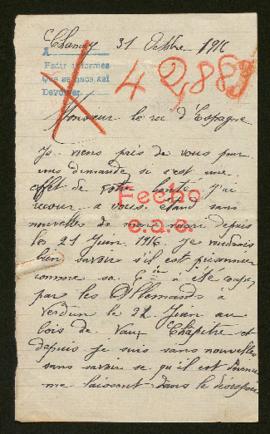 Chauny 31 Octobre 1916
A
Pedir informes
Devolver
42,889
Monsieur le roi d'Espagne
Je viens près de vous pour
une demande si c'est une
effet de votre bonté j'ai
recour a vous étant sans
nouvelle de mon mari depuis
le 21 Juin 1916. Je voudrais
bien savoir s'il est prisonnier
comme sa Cie à été
par les Allemands à
Verdun le 22 Juin au
bois de Vaux Chapitre et
depuis je suis sans nouvelles
sans savoir se qu'il est devenu
me laissant dans le
Fecho